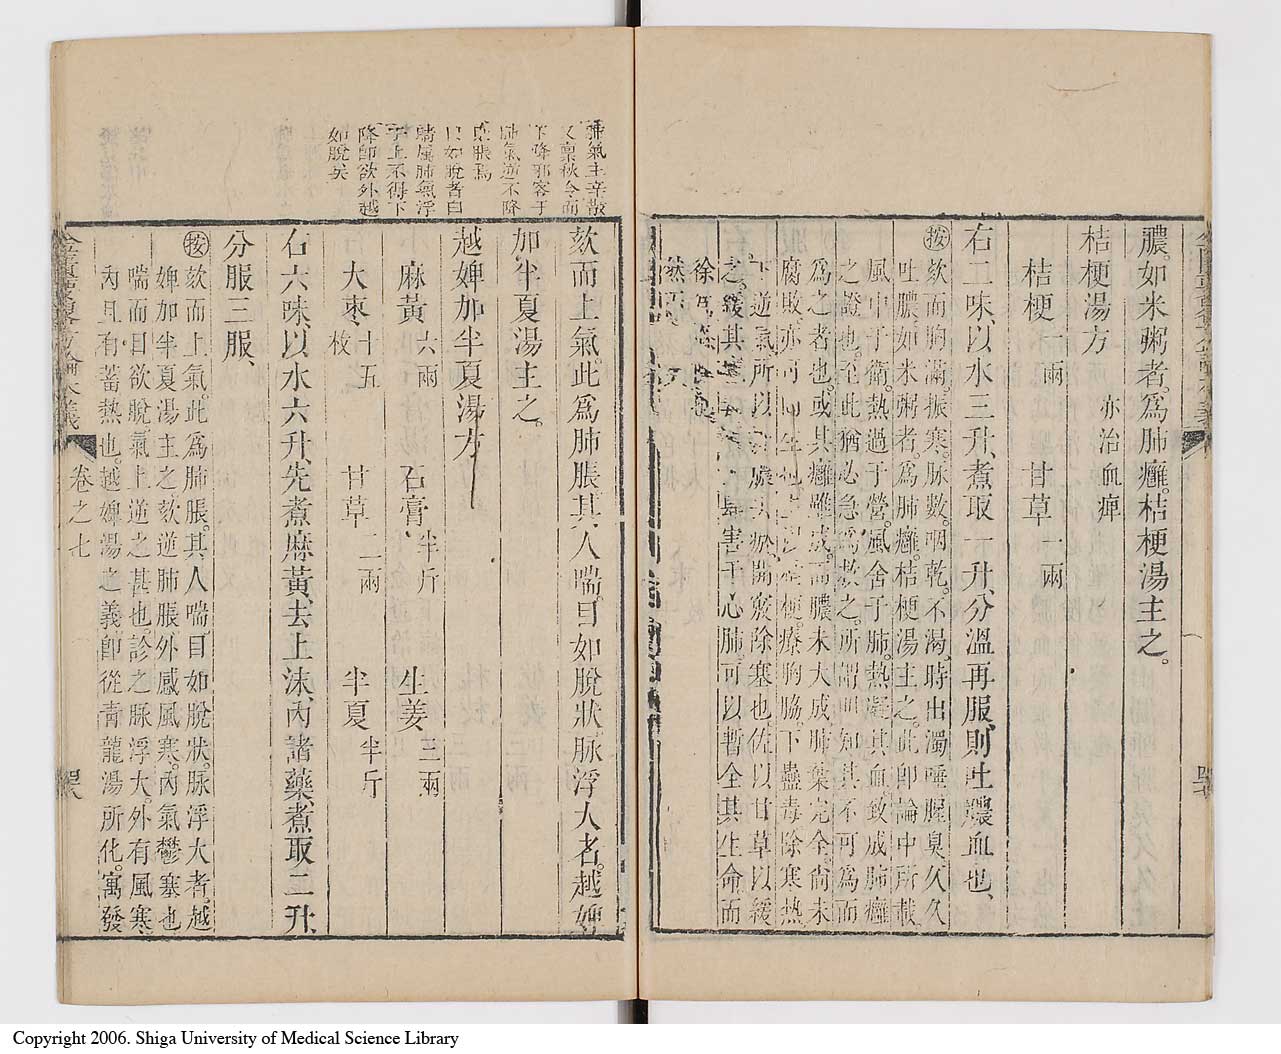 膿。如米粥者。爲肺癰。桔梗湯主之。
桔梗湯方 亦治血痺
桔梗一兩 甘草二兩
右二味、以水三升、煮取一升、分溫再服、則吐膿血也、
按欬而胸滿。振寒。脉數。咽乾。不渴、時出濁唾腥臭。久久
吐膿。如米粥者。爲肺癰。桔梗湯主之。此卽論中所載
風中于衛。熱過于營。風舍于肺。熱凝其血。致成肺癰
之證也。至此猶必急爲救之。所謂明知其不可爲而
爲之者也。或其癰雖成。而膿未大成。肺葉完全。尙未
腐敗。亦可 桔梗療胸脇下蠱毒除寒熱
下逆氣所以 開竅除塞也。佐以甘草以緩
之。緩其 害于心肺。可以暫全其生命而
徐
欬而上氣。此爲肺脹其人喘。目如脫狀。脉浮大者。越婢
加半夏湯主之。
越婢加半夏湯方
麻黃六兩 石膏半斤 生姜三兩
大棗十五枚 甘草二兩 半夏半斤
右六味、以水六升、先煮麻黃、去上沫、內諸藥、煮取二升、
分服三服、
按欬而上氣。此爲肺脹。其人喘。目如脫狀。脉浮大者。越
婢加半夏湯主之。欬逆肺脹外感風寒。內氣鬱塞也
喘而目欲脫氣上逆之甚也。診之脉浮大。外有風寒、
內且有蓄熱也。越婢湯之義卽從靑龍湯所化。寓發
卷之七
肺氣主辛散
又稟秋令而
下降邪客于
肺氣逆不降
斯脹焉
目如脫者目
睛屬肺氣浮
于上不得下
降卽欲外越
如脫矣
Copyright 2006. Shiga University of Medical Science Library